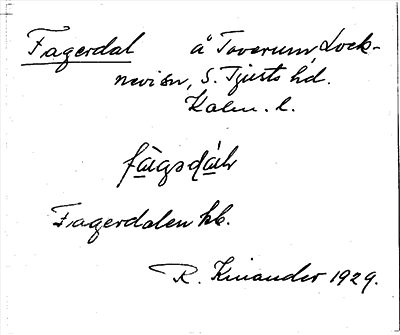 Fagerdal å Toverum, Lock-
nevi sn, S. Tjusts hd.
Kalm. l.
Fagerdalen kb.
R. Kinander 1929.